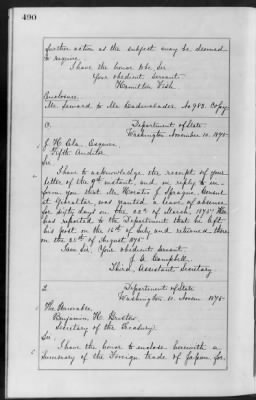 490
further action as the subject may be deemed
to require.
I have the honor to be Sir
Your obedient servant
Hamilton Fish
Enclosure.
Mr. Seward to Mr. Cadwalader. No 983. Copy.
Department of State
Washington November 10. 1875
J. H. Ela. Esquire
Fifth Auditor.
Sir
I have to acknowledge the receipt of your
letter of the 9th instant, and in reply to in-
form you that Mr. Horatio J. Sprague, Consul
at Gibraltar, was granted a leave of absence
for sixty days on the 22d of March, 1875. He
has reported to the Department that he left
his post on the 16th of July and returned there-
on the 28th of August 1875
I am Sir, Your obedient servant
J. A. Campbell
Third Assistant Secretary
Department of State
Washington. 10. Novem. 1875
The Honorable,
Benjamin H. Bristow.
Secretary of the Treasury.
Sir.
I have the honor to enclose herewith a
Summary of the Foreign trade of Japan for